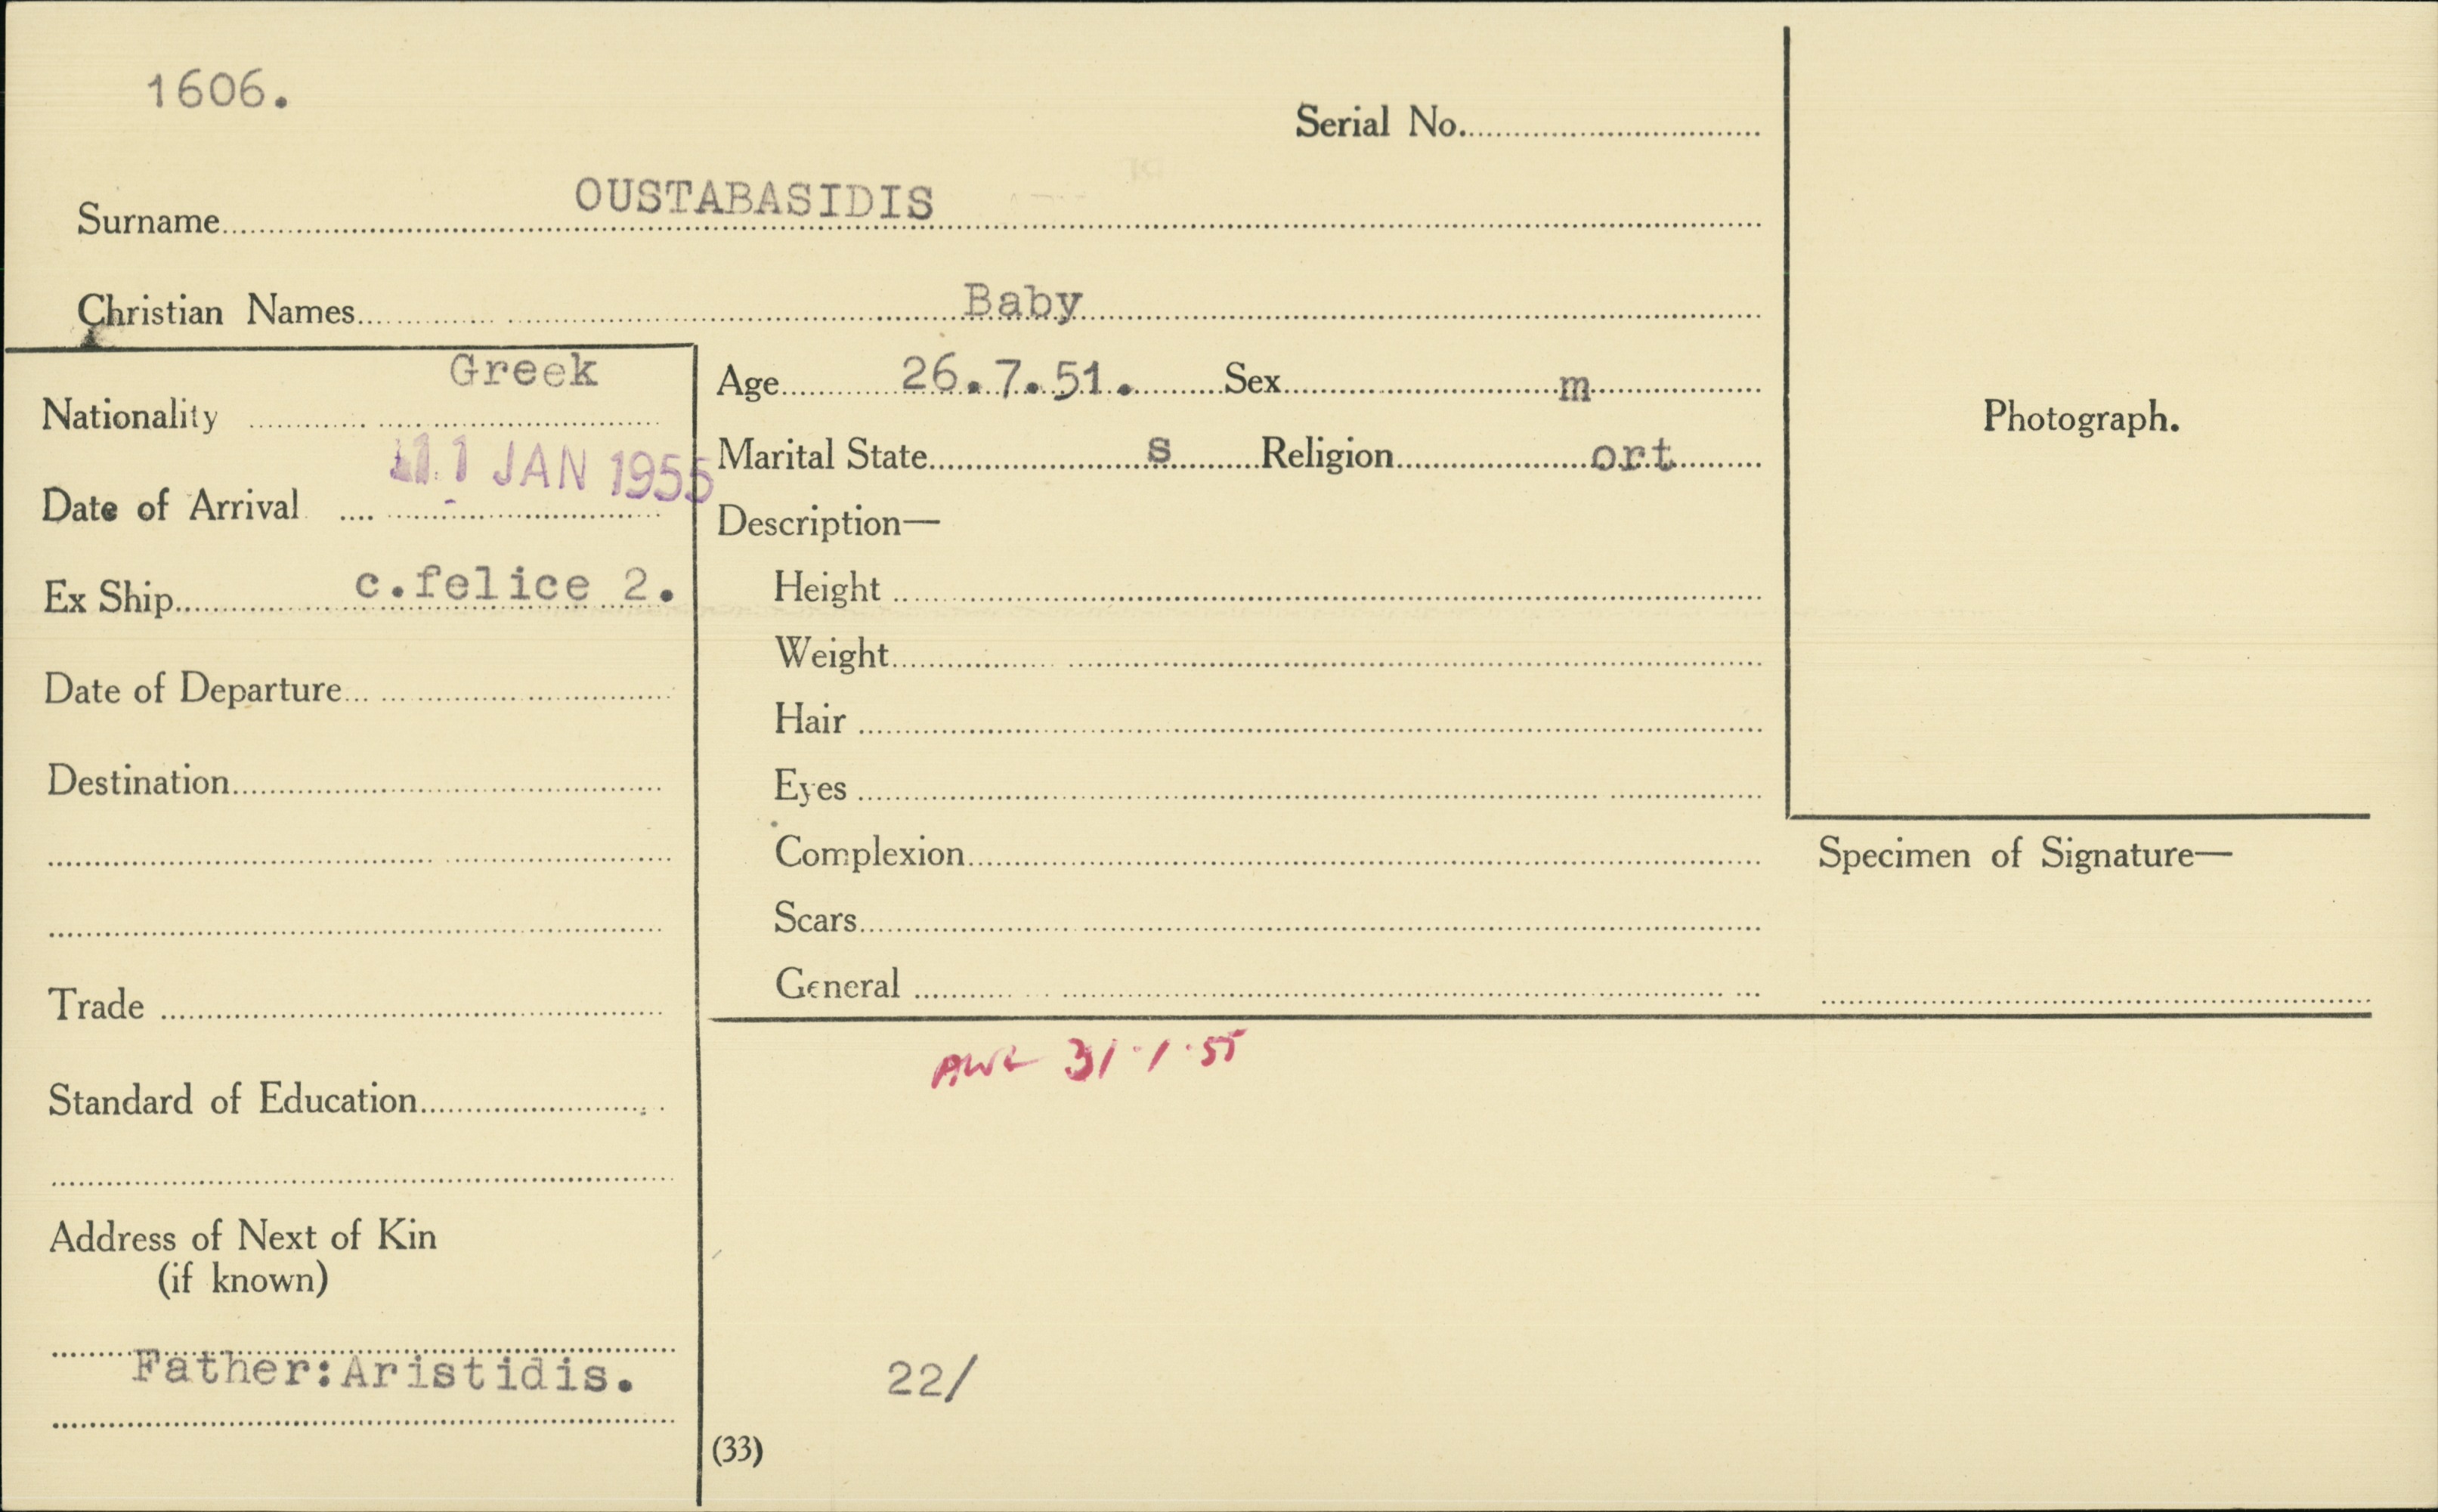 1606.
Serial No.
Surname OUSTABASIDIS
Christian Names Baby
Nationality Greek
Date of Arrival 11 JAN 1955
Ex Ship c.felice 2.
Date of Departure
Destination
Trade
Standard of Education
Address of Next of Kin
(if known)
Father:Aristidis.
Age 26.7.51. Sex m
Marital State s Religion ort
Description—
Height
Weight
Hair
Eyes
Complexion
Scars
General
31.1.55
22/
(33)
Photograph.
Specimen of Signature—